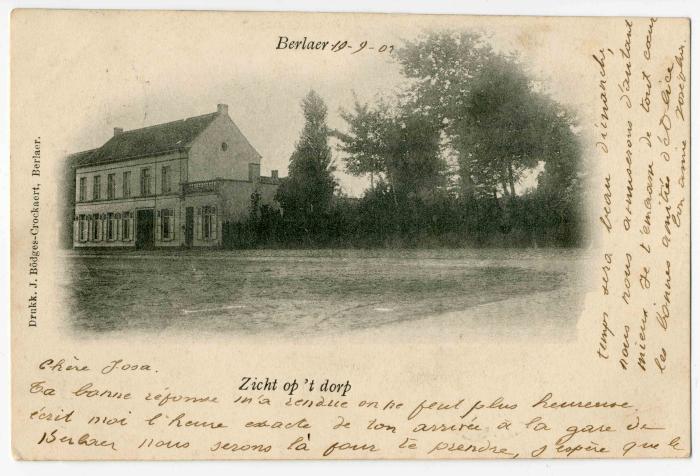 Berlaer 19-9-01
Drukk. J. Bödges-Crockaert, Berlaer.
Zicht op 't dorp
Chère Josa.
Ta bonne réponse m'a rendue on ne peut plus heureuse
écrit moi l'heure exacte de ton arrivée à la gare de
Berlaer nous serons là pour te prendre, j'espère que le
temps sera beau dimanche,
nous nous amuserons d'autant
mieux. Je t'embrasse de tout cœur
les bonnes amitiés d'Alice
ton amie